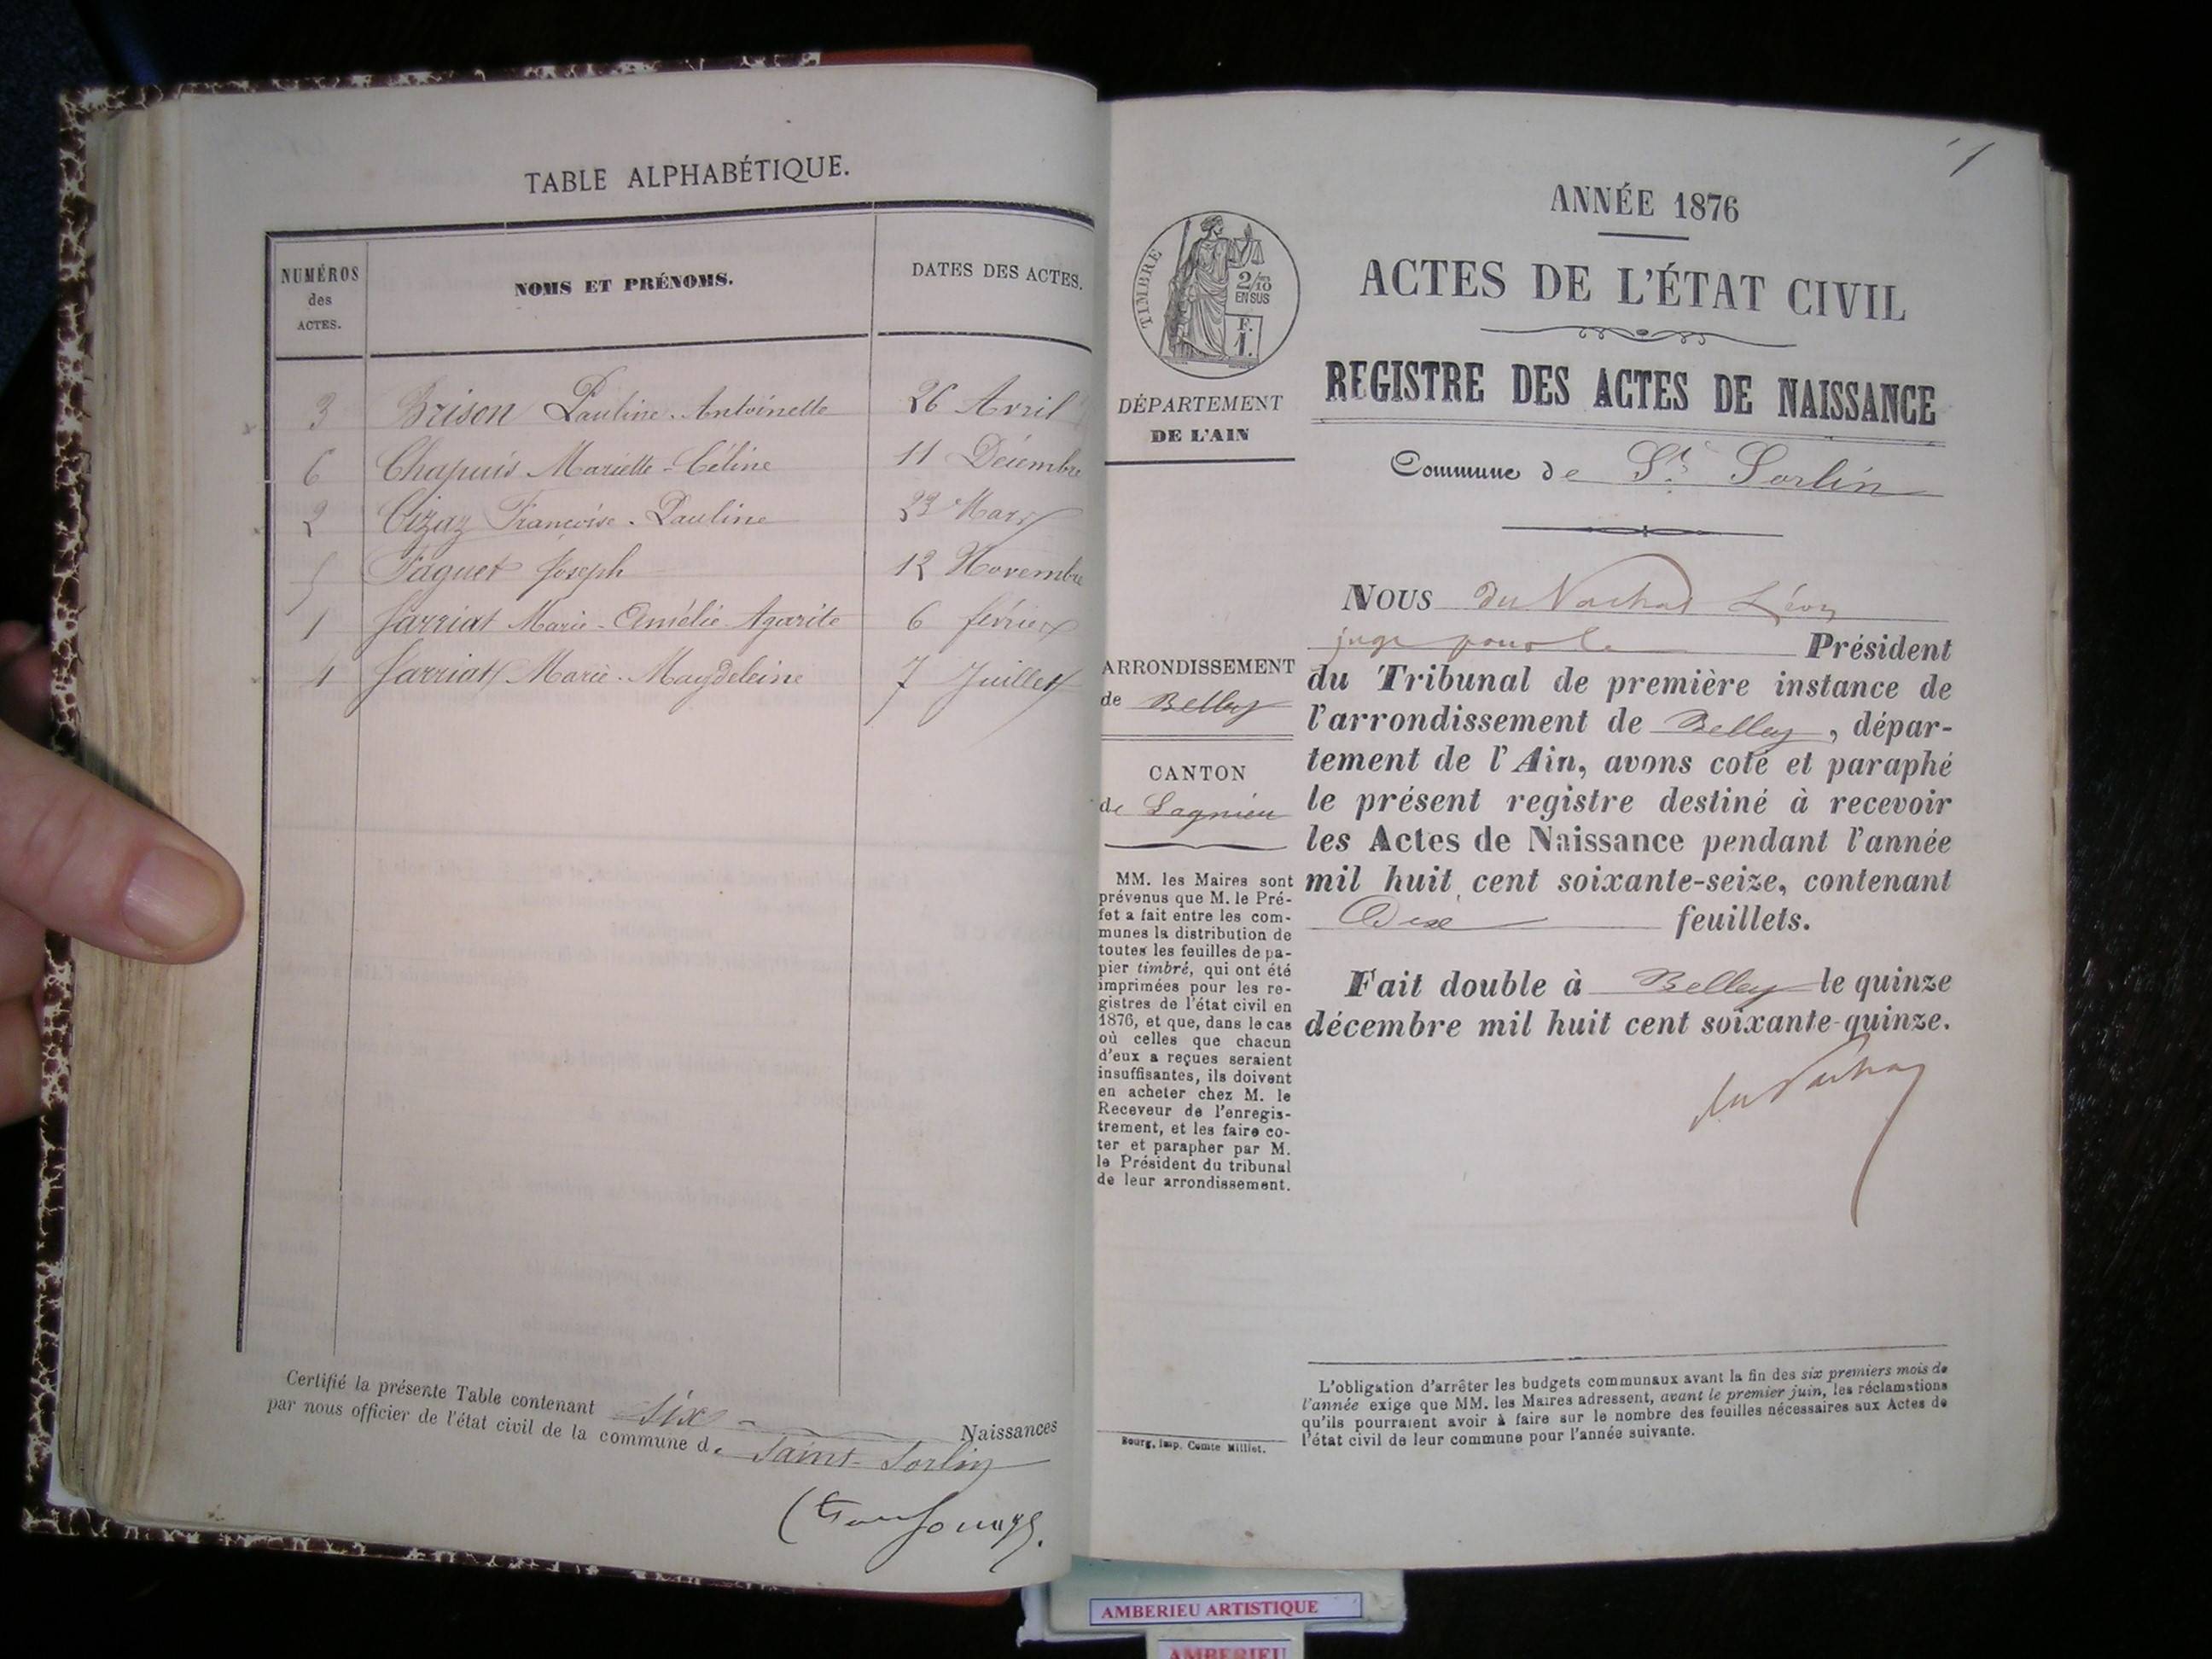 TABLE ALPHABÉTIQUE.
NUMÉROS des ACTES.
NOMS ET PRÉNOMS.
DATES DES ACTES.
3 Brison Pauline-Antoinette 26 Avril
6 Chapuis Mariette-Céline 11 Décembre
2 Cizaz Françoise-Pauline 23 Mars
5 Faguet Joseph 12 Novembre
1 Jarriat Marie-Amélie-Agarite 6 février
4 Jarriat Marie-Magdeleine 7 Juillet
Certifié la présente Table contenant six Naissances
par nous officier de l'état civil de la commune de Saint-Sorlin
1
TIMBRE
2/10
EN SUS
F.
1.
DÉPARTEMENT
DE L'AIN
ARRONDISSEMENT
de Belley
CANTON
de Lagnieu
MM. les Maires sont
prévenus que M. le Pré-
fet a fait entre les com-
munes la distribution de
toutes les feuilles de pa-
pier timbré, qui ont été
imprimées pour les re-
gistres de l'état civil en
1876, et que, dans le cas
où celles que chacun
d'eux a reçues seraient
insuffisantes, ils doivent
en acheter chez M. le
Receveur de l'enregis-
trement, et les faire co-
ter et parapher par M.
le Président du tribunal
de leur arrondissement.
Bourg, imp. Comte Milliet.
ANNÉE 1876
ACTES DE L'ÉTAT CIVIL
REGISTRE DES ACTES DE NAISSANCE
Commune de St Sorlin
NOUS du Vachat Léon
juge pour le Président
du Tribunal de première instance de
l'arrondissement de Belley, dépar-
tement de l'Ain, avons coté et paraphé
le présent registre destiné à recevoir
les Actes de Naissance pendant l'année
mil huit cent soixante-seize, contenant
Dix feuillets.
Fait double à Belley le quinze
décembre mil huit cent soixante-quinze.
du Vachat
L'obligation d'arrêter les budgets communaux avant la fin des six premiers mois de
l'année exige que MM. les Maires adressent, avant le premier juin, les réclamations
qu'ils pourraient avoir à faire sur le nombre des feuilles nécessaires aux Actes de
l'état civil de leur commune pour l'année suivante.
AMBERIEU ARTISTIQUE
AMBERIEU